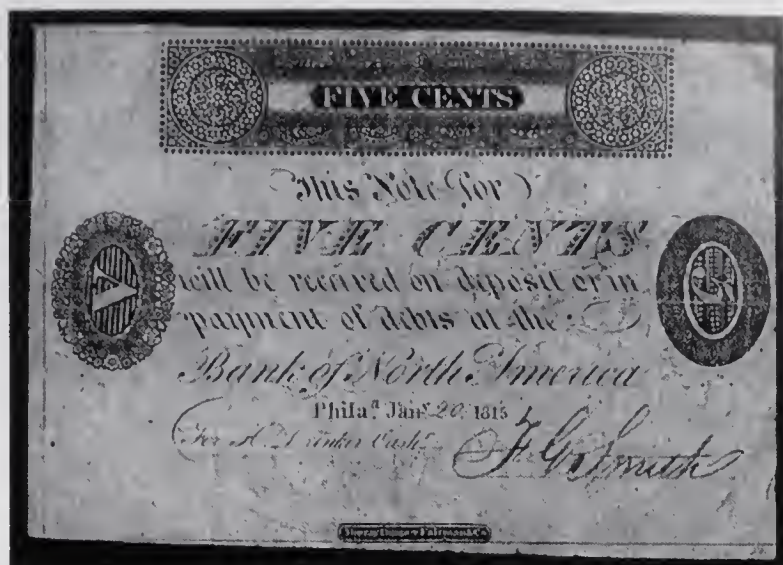 FIVE CENTS
This Note for
FIVE CENTS
will be received on deposit or in
payment of debts at the
Bank of North America
Philaᵃ Janʸ 20 1815
For H Drinker Cashʳ
F G Smith
V
5
Murray Draper Fairman & Co